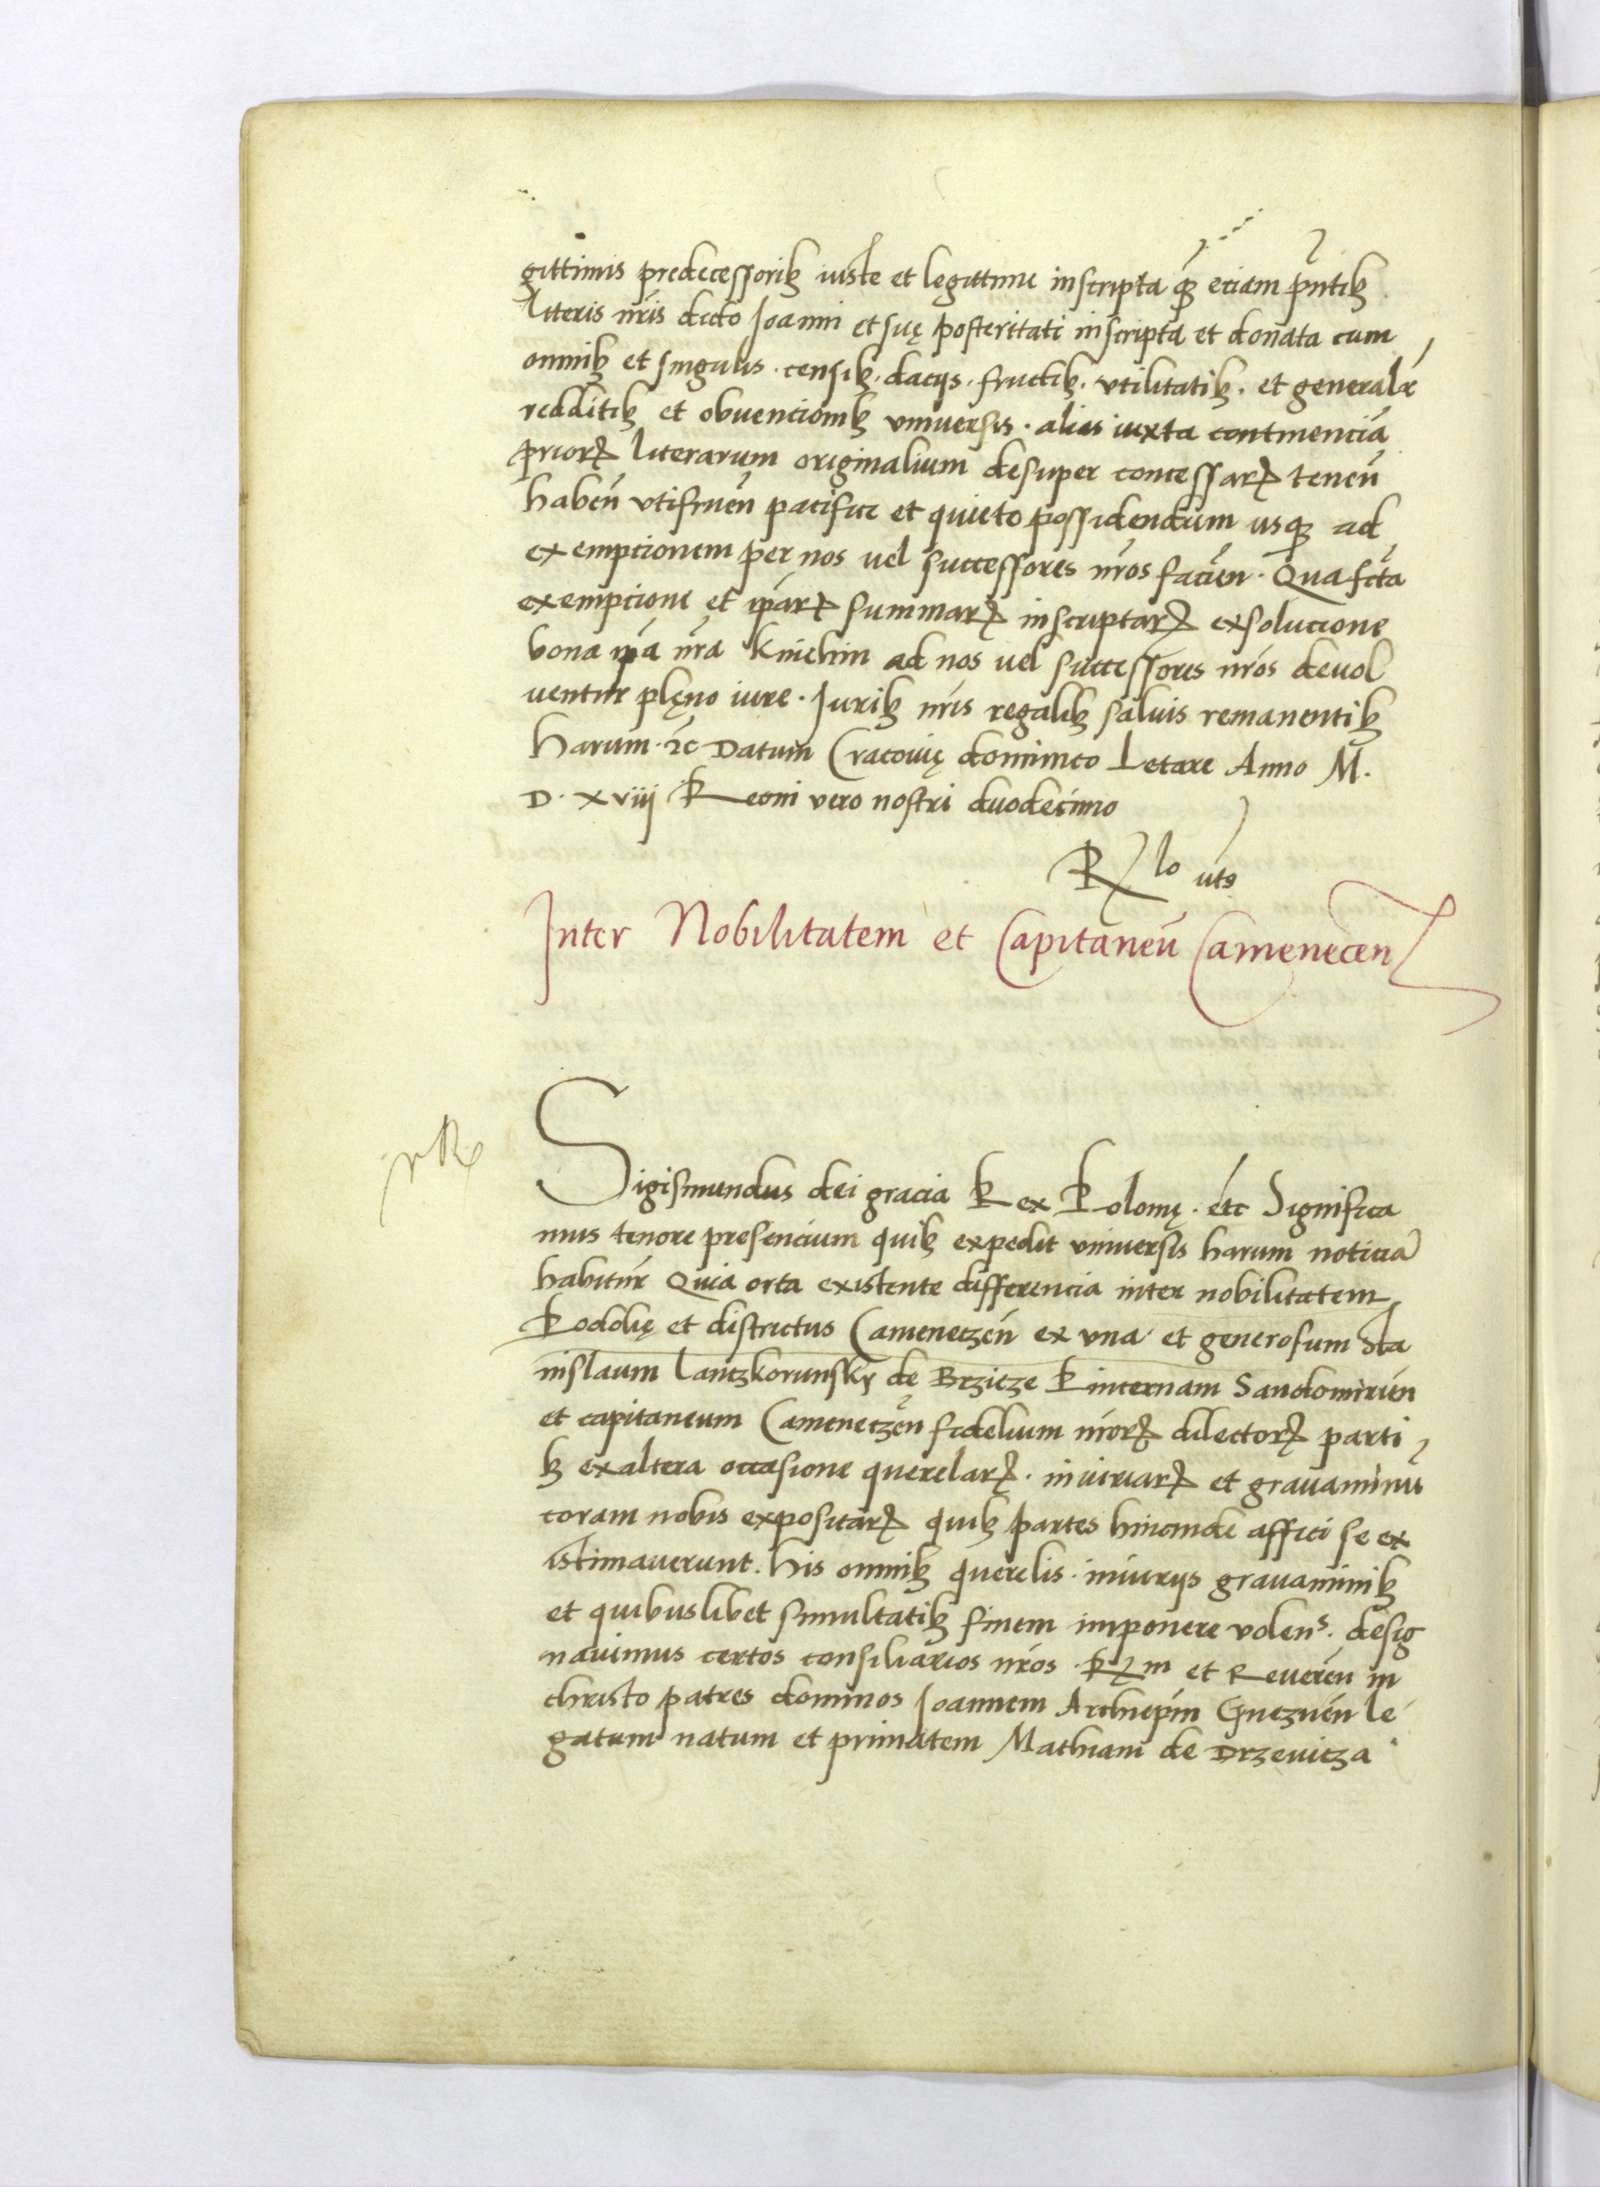 gittimis predecessoribꝫ iuste et legittime inscripta qꝫ eciam pn̄tibꝫ
literis nr̄is dicto Joanni et suę posteritati inscripta et donata cum
omnibꝫ et singulis · censibꝫ · dacijs · fructibꝫ · vtilitatibꝫ · et generalr̄
redditibꝫ et obvencionibꝫ vniversis · alias iuxta continenciā
priorꝝ literarum originalium desuper concessarꝝ tenen̄
haben̄ vtifruen̄ pacifice et quieto possidendum usqꝫ ad
exempcionem per nos vel successores nr̄os facien̄ · Qua fcta
exempcione et ip̄arꝝ summarꝝ inscriptarꝝ exsolucione
bona ip̄a nr̄a Kniehin ad nos vel successores nr̄os devol
ventur plęno iure · Juribꝫ nr̄is regalibꝫ salvis remanentibꝫ
harum · ꝛc Datum Cracovię dominico Letare Anno M ·
D · xviij Regni vero nostri duodecimo
Rlo uts
Inter Nobilitatem et Capitaneū Camenecen
Sigismundus dei gracia Rex Polonię · etc Significa
mus tenore presencium quibꝫ expedit vniversis harum noticiā
habitur̄ Quia orta existente differencia inter nobilitatem
Podolię et districtus Cameneczen̄ ex vna et generosum Sta
nislaum Lantzkorunsky de Brzitze Pincernam Sandomirien̄
et capitaneum Cameneczen̄ fidelium nr̄orꝝ dilectorꝝ parti
bꝫ ex altera occasione querelarꝝ · iniuriarꝝ et gravaminū
coram nobis expositarꝝ quibꝫ partes hincinde affici se ex
istimaverunt · his omnibꝫ querelis · iniurijs gravaminibꝫ
et quibuslibet simultatibꝫ finem imponere volens · desig
navimus certos consiliarios nr̄os · Rm et Reveren̄ in
christo patres dominos Joannem Archiepm̄ Gneznen̄ le
gatum natum et primatem Mathiam de Drzevicza